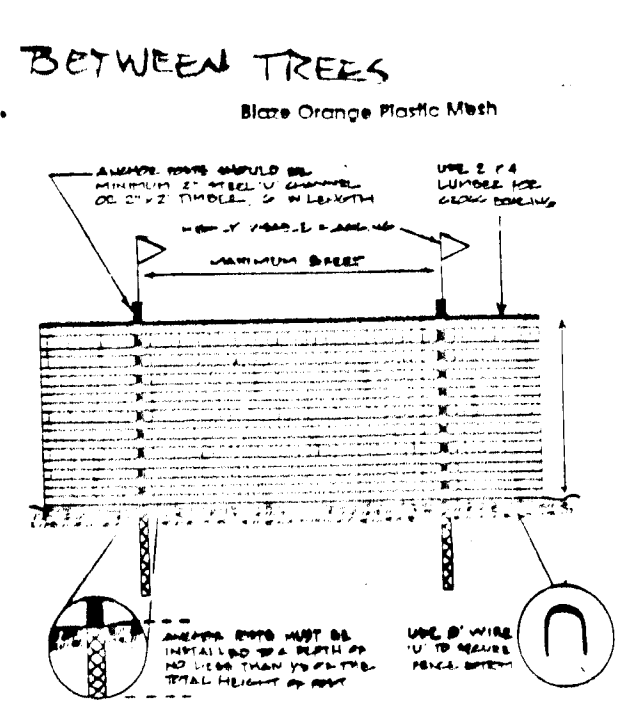 BETWEEN TREES
Blaze Orange Plastic Mesh
ANCHOR POSTS SHOULD BE
MINIMUM 2" STEEL 'U' CHANNEL
OR 2" x 2" TIMBER, 6' IN LENGTH
USE 2 x 4
LUMBER FOR
CROSS BRACING
HIGHLY VISIBLE FLAGGING
MAXIMUM 8 FEET
ANCHOR POSTS MUST BE
INSTALLED TO A DEPTH OF
NO LESS THAN 1/3 OF THE
TOTAL HEIGHT OF POST
USE 8" WIRE
'U' TO SECURE
FENCE BOTTOM